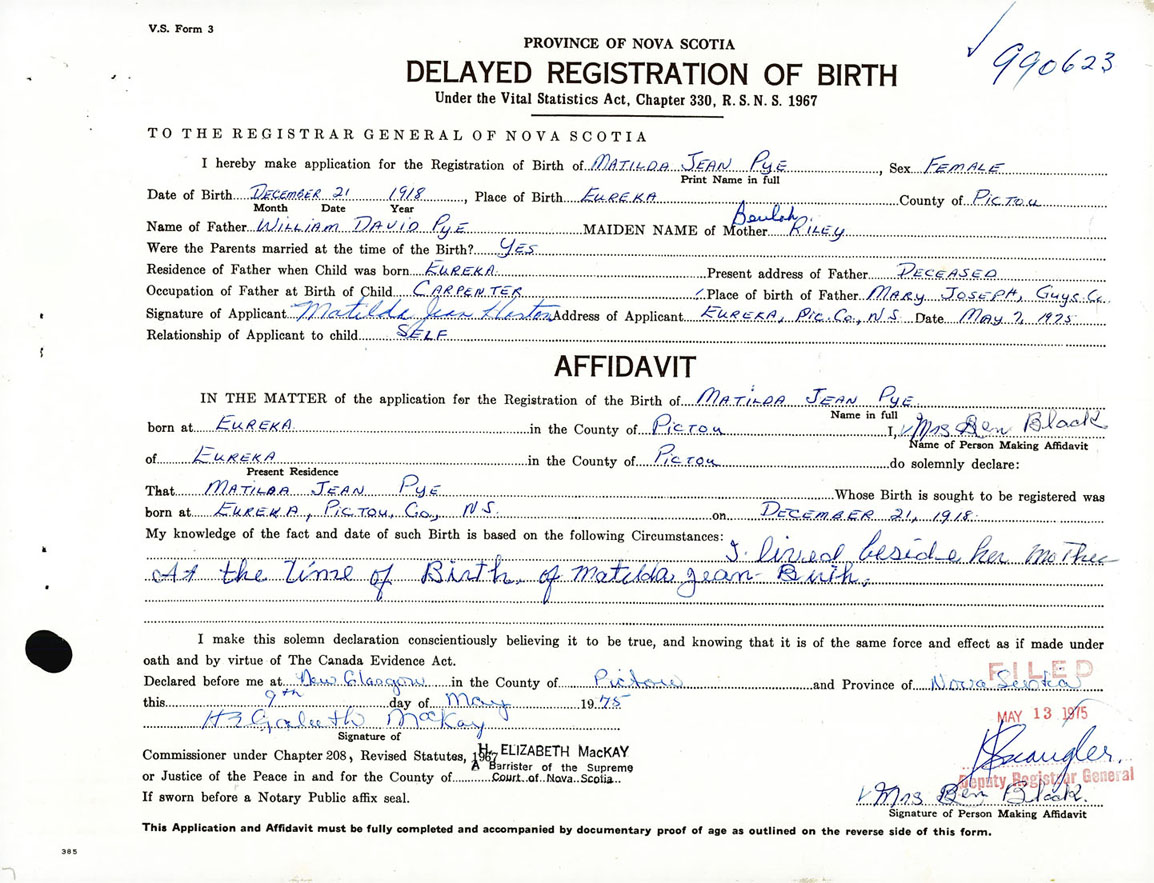 V.S. Form 3
990623
PROVINCE OF NOVA SCOTIA
DELAYED REGISTRATION OF BIRTH
Under the Vital Statistics Act, Chapter 330, R. S. N. S. 1967
TO THE REGISTRAR GENERAL OF NOVA SCOTIA
I hereby make application for the Registration of Birth of MATILDA JEAN PYE, Sex FEMALE
Print Name in full
Date of Birth DECEMBER 21 1918, Place of Birth EUREKA County of PICTOU
Month Date Year
Beulah
Name of Father WILLIAM DAVID PYE MAIDEN NAME of Mother RILEY
Were the Parents married at the time of the Birth? YES
Residence of Father when Child was born EUREKA Present address of Father DECEASED
Occupation of Father at Birth of Child CARPENTER Place of birth of Father MARY JOSEPH, GUYS. Co.
Signature of Applicant Matilda Jean Address of Applicant EUREKA, PIC. Co., N.S. Date MAY 7, 1975
Relationship of Applicant to child SELF
AFFIDAVIT
IN THE MATTER of the application for the Registration of the Birth of MATILDA JEAN PYE
Name in full
born at EUREKA in the County of PICTOU I, Mrs Ben Black
Name of Person Making Affidavit
of EUREKA in the County of PICTOU do solemnly declare:
Present Residence
That MATILDA JEAN PYE Whose Birth is sought to be registered was
born at EUREKA, PICTOU, Co., N.S. on DECEMBER 21, 1918.
My knowledge of the fact and date of such Birth is based on the following Circumstances: I lived beside her Mother
At the time of Birth. of Matilda Jean Birth.
I make this solemn declaration conscientiously believing it to be true, and knowing that it is of the same force and effect as if made under
oath and by virtue of The Canada Evidence Act.
FILED
Declared before me at New Glasgow in the County of Pictou and Province of Nova Scotia
this 9th day of May 1975
MAY 13 1975
H Elizabeth MacKay
Signature of
Commissioner under Chapter 208, Revised Statutes, 1967
H. ELIZABETH MacKAY
A Barrister of the Supreme
or Justice of the Peace in and for the County of Court of Nova Scotia
Deputy Registrar General
If sworn before a Notary Public affix seal.
Mrs Ben Black.
Signature of Person Making Affidavit
This Application and Affidavit must be fully completed and accompanied by documentary proof of age as outlined on the reverse side of this form.
385